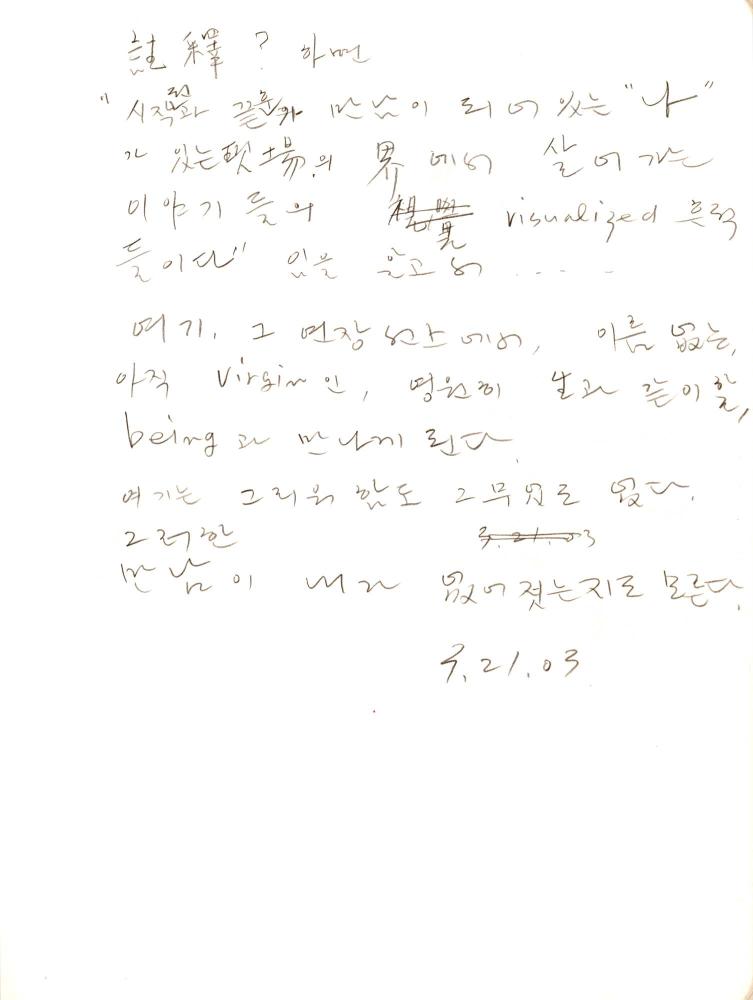 註釋? 하면
"시작전과 끝후가 만남이 되어 있는 "나"
가 있는 場의 界에서 살어가는
이야기들의 visualized 흔적
들이다" 임을 알고서 ....
여기, 그 연장선上에서, 이름 없는,
아직 virgin인, 영원히 生과 같이 할,
being과 만나게 된다.
여기는 그리워 함도 그 무엇도 없다.
그러한 3.21.03
만남이 내가 없어졌는지도 모른다.
3.21.03